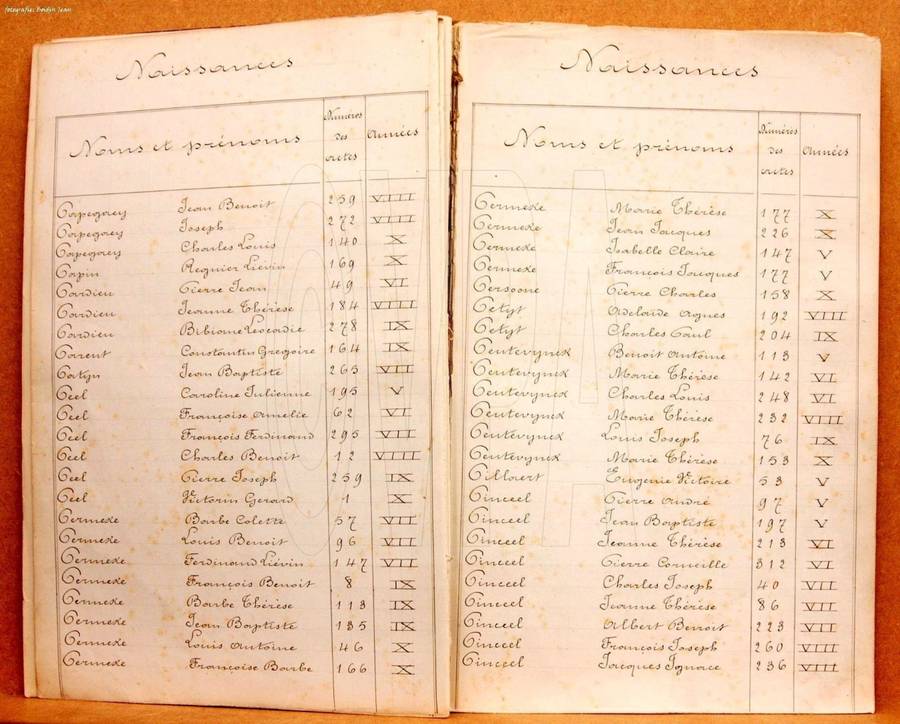 fotografie: Boidin Jean
Naissances
Noms et prénoms Numéros des actes Années
Papegaey Jean Benoit 259 VIII
Papegaey Joseph 272 VIII
Papegaey Charles Louis 140 X
Papin Regnier Liévin 169 X
Pardieu Pierre Jean 49 VI
Pardieu Jeanne Thérèse 184 VIII
Pardieu Bibiane Leocadie 278 IX
Parrent Constantin Grégoire 164 IX
Patyn Jean Baptiste 263 VII
Peel Caroline Julienne 195 V
Peel Françoise Amelie 62 VI
Peel François Ferdinand 295 VII
Peel Charles Benoit 12 VIII
Peel Pierre Joseph 259 IX
Peel Victorin Gerard 1 X
Permeke Barbe Colette 57 VII
Permeke Louis Benoit 96 VII
Permeke Ferdinand Liévin 147 VII
Permeke François Benoit 8 IX
Permeke Barbe Thérèse 113 IX
Permeke Jean Baptiste 135 IX
Permeke Louis Antoine 46 X
Permeke Françoise Barbe 166 X
Naissances
Noms et prénoms Numéros des actes Années
Permeke Marie Thérèse 177 X
Permeke Jean Jacques 226 X
Permeke Isabelle Claire 147 V
Permeke François Jacques 177 V
Persoone Pierre Charles 158 X
Petyt Adelaïde Agnes 192 VIII
Petyt Charles Paul 204 IX
Peutevynck Benoit Antoine 113 V
Peutevynck Marie Thérèse 142 VI
Peutevynck Charles Louis 248 VI
Peutevynck Marie Thérèse 232 VIII
Peutevynck Louis Joseph 76 IX
Peutevynck Marie Thérèse 153 X
Pillaert Eugenie Victoire 53 V
Pinceel Pierre André 97 V
Pinceel Jean Baptiste 197 V
Pinceel Jeanne Thérèse 213 VI
Pinceel Pierre Corneille 312 VI
Pinceel Charles Joseph 40 VII
Pinceel Jeanne Thérèse 86 VII
Pinceel Albert Benoit 223 VII
Pinceel François Joseph 260 VIII
Pinceel Jacques Ignace 236 VIII